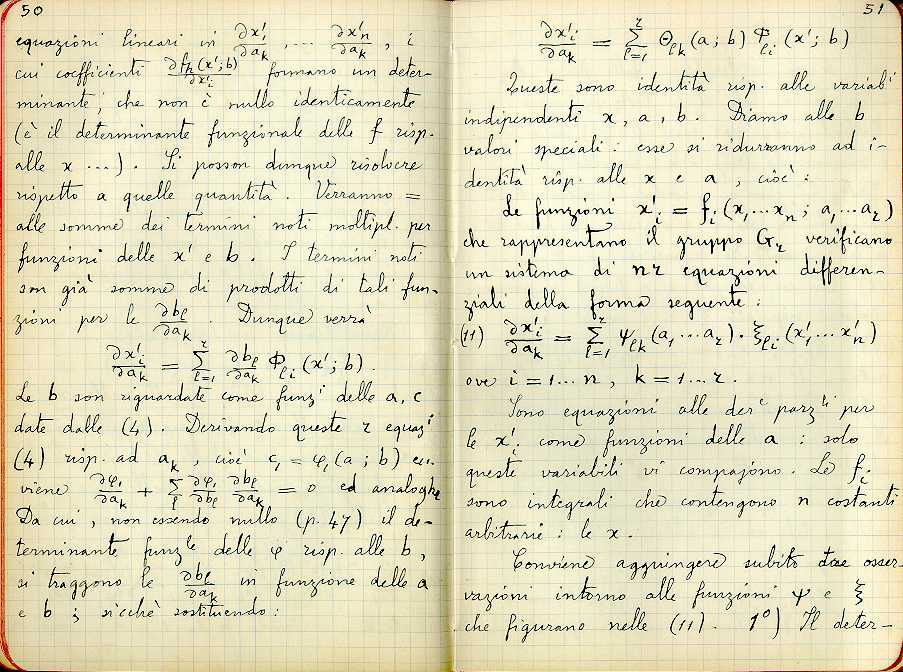 50
equazioni lineari in ∂x'₁/∂aₖ, ... ∂x'ₙ/∂aₖ, i
cui coefficienti ∂fₕ(x';b)/∂x'ᵢ formano un deter-
minante, che non è nullo identicamente
(è il determinante funzionale delle f risp.
alle x ...). Si posson dunque risolvere
rispetto a quelle quantità. Verranno =
alle somme dei termini noti moltipl. per
funzioni delle x' e b. I termini noti
son già somme di prodotti di tali fun-
zioni per le ∂bₗ/∂aₖ. Dunque verrà
∂x'ᵢ/∂aₖ = Σₗ₌₁ʳ ∂bₗ/∂aₖ Φₗᵢ(x';b).
Le b son riguardate come funzⁱ delle a, c
date dalle (4). Derivando queste r equazⁱ
(4) risp. ad aₖ, cioè c₁ = φ₁(a;b) ev-
viene ∂φ₁/∂aₖ + Σₗ ∂φ₁/∂bₗ ∂bₗ/∂aₖ = 0 ed analoghe
Da cui, non essendo nullo (p. 47) il de-
terminante funzˡᵉ delle φ risp. alle b,
si traggono le ∂bₗ/∂aₖ in funzione delle a
e b; sicchè sostituendo:
51
∂x'ᵢ/∂aₖ = Σₗ₌₁ʳ Θₗₖ(a;b) Φₗᵢ(x';b)
Queste sono identità risp. alle variabⁱ
indipendenti x, a, b. Diamo alle b
valori speciali: esse si ridurranno ad i-
dentità risp. alle x e a, cioè:
Le funzioni x'ᵢ = fᵢ(x₁...xₙ; a₁...aᵣ)
che rappresentano il gruppo Gᵣ verificano
un sistema di nr equazioni differen-
ziali della forma seguente:
(11) ∂x'ᵢ/∂aₖ = Σₗ₌₁ʳ ψₗₖ(a₁...aᵣ).ξₗᵢ(x'₁...x'ₙ)
ove i=1...n, k=1...r.
Sono equazioni alle derᵉ parzˡⁱ per
le x'ᵢ come funzioni delle a: solo
queste variabili vi compajono. Le fᵢ
sono integrali che contengono n costanti
arbitrarie: le x.
Conviene aggiungere subito due osser-
vazioni intorno alle funzioni ψ e ξ
che figurano nelle (11). 1º) Il deter-